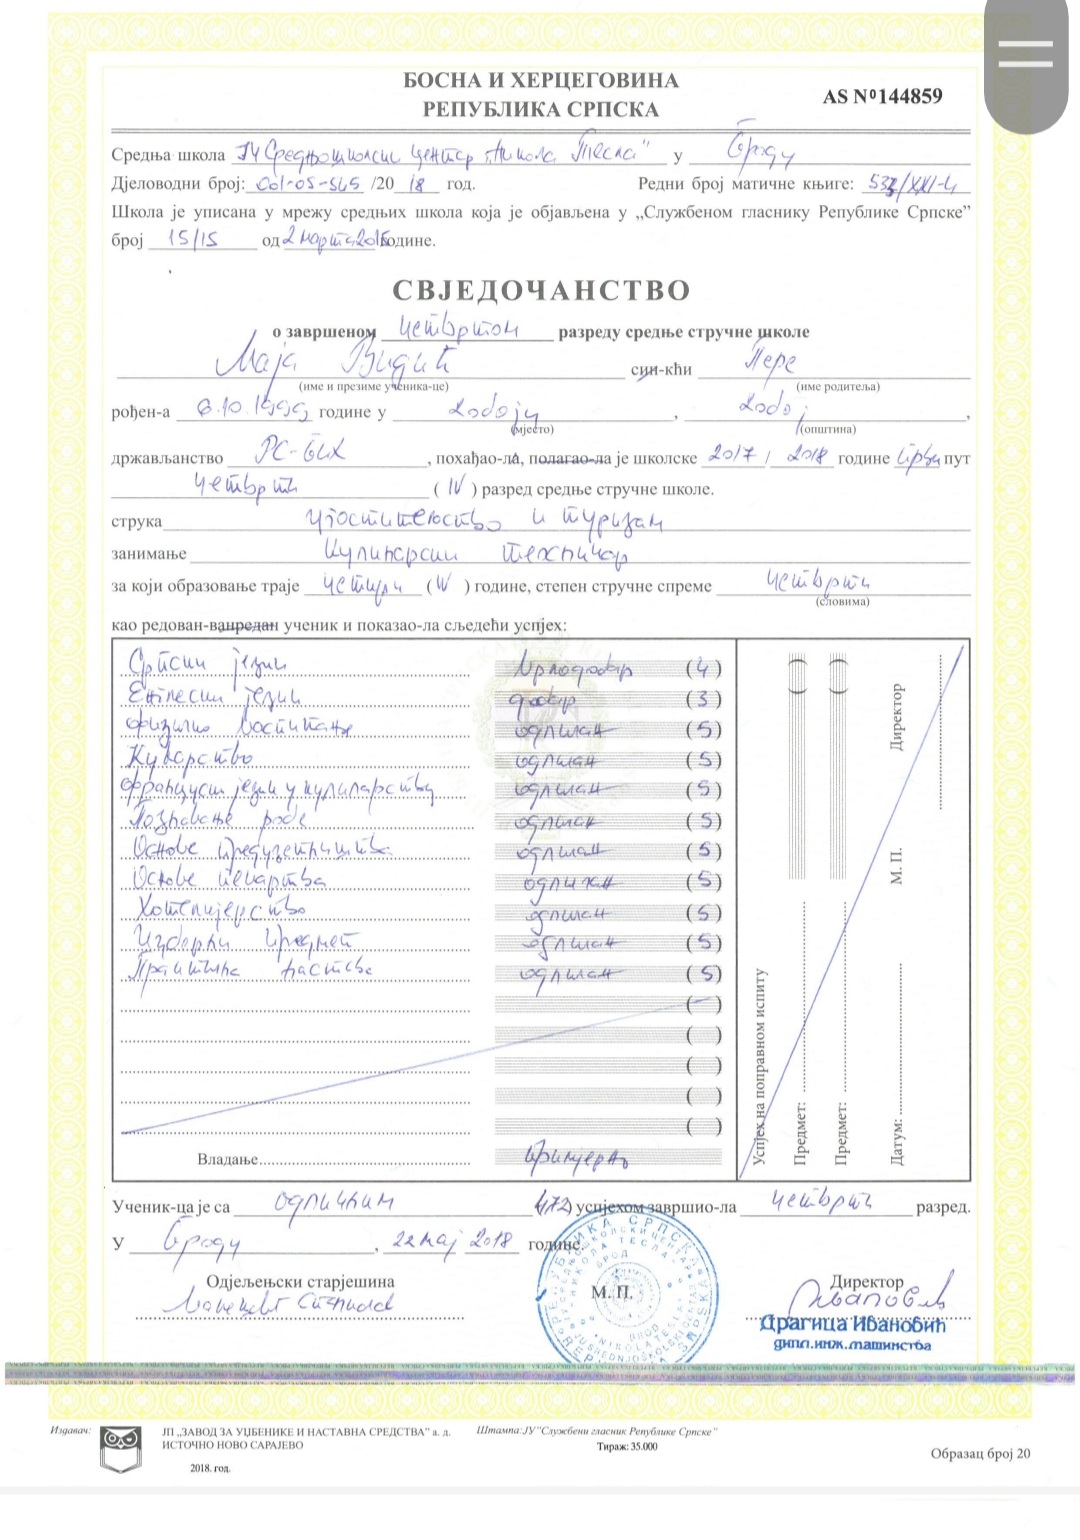 БОСНА И ХЕРЦЕГОВИНА
РЕПУБЛИКА СРПСКА
AS Nº144859
Средња школа ЈУ Средњошколски центар „Никола Тесла" у Броду
Дјеловодни број: 001-05-545 /20 18 год. Редни број матичне књиге: /XXI-4
Школа је уписана у мрежу средњих школа која је објављена у „Службеном гласнику Републике Српске”
број 15/15 од 2 марта 2015 године.
СВЈЕДОЧАНСТВО
о завршеном четвртом разреду средње стручне школе
Маја Видић син-кћи Пере
(име и презиме ученика-це) (име родитеља)
рођен-а 6.10.1999 године у Добоју, Добој,
(мјесто) (општина)
држављанство РС-БиХ, похађао-ла, полагао-ла је школске 2017 / 2018 године први пут
четврти ( IV ) разред средње стручне школе.
струка угоститељство и туризам
занимање Кулинарски техничар
за који образовање траје четири ( IV ) године, степен стручне спреме четврти
(словима)
као редован-ванредан ученик и показао-ла сљедећи успјех:
Српски језик врлодобар (4)
Енглески језик добар (3)
Физичко васпитање одличан (5)
Куварство одличан (5)
Француски језик у кулинарству одличан (5)
Познавање робе одличан (5)
Основе предузетништва одличан (5)
Основе пекарства одличан (5)
Хотелијерство одличан (5)
Изборни предмет одличан (5)
Практична настава одличан (5)
( )
( )
( )
( )
( )
Владање примјерно
Успјех на поправном испиту
Предмет: ( )
Предмет: ( )
Датум: М. П. Директор
Ученик-ца је са одличним 4,72 успјехом завршио-ла четврти разред.
У Броду, 22 мај 2018 године.
Одјељенски старјешина
М. П.
Директор
Драгица Ивановић
дипл.инж.машинства
Издавач:
ЈП „ЗАВОД ЗА УЏБЕНИКЕ И НАСТАВНА СРЕДСТВА” а. д.
ИСТОЧНО НОВО САРАЈЕВО
2018. год.
Штампа: ЈУ "Службени гласник Републике Српске"
Тираж: 35.000
Образац број 20